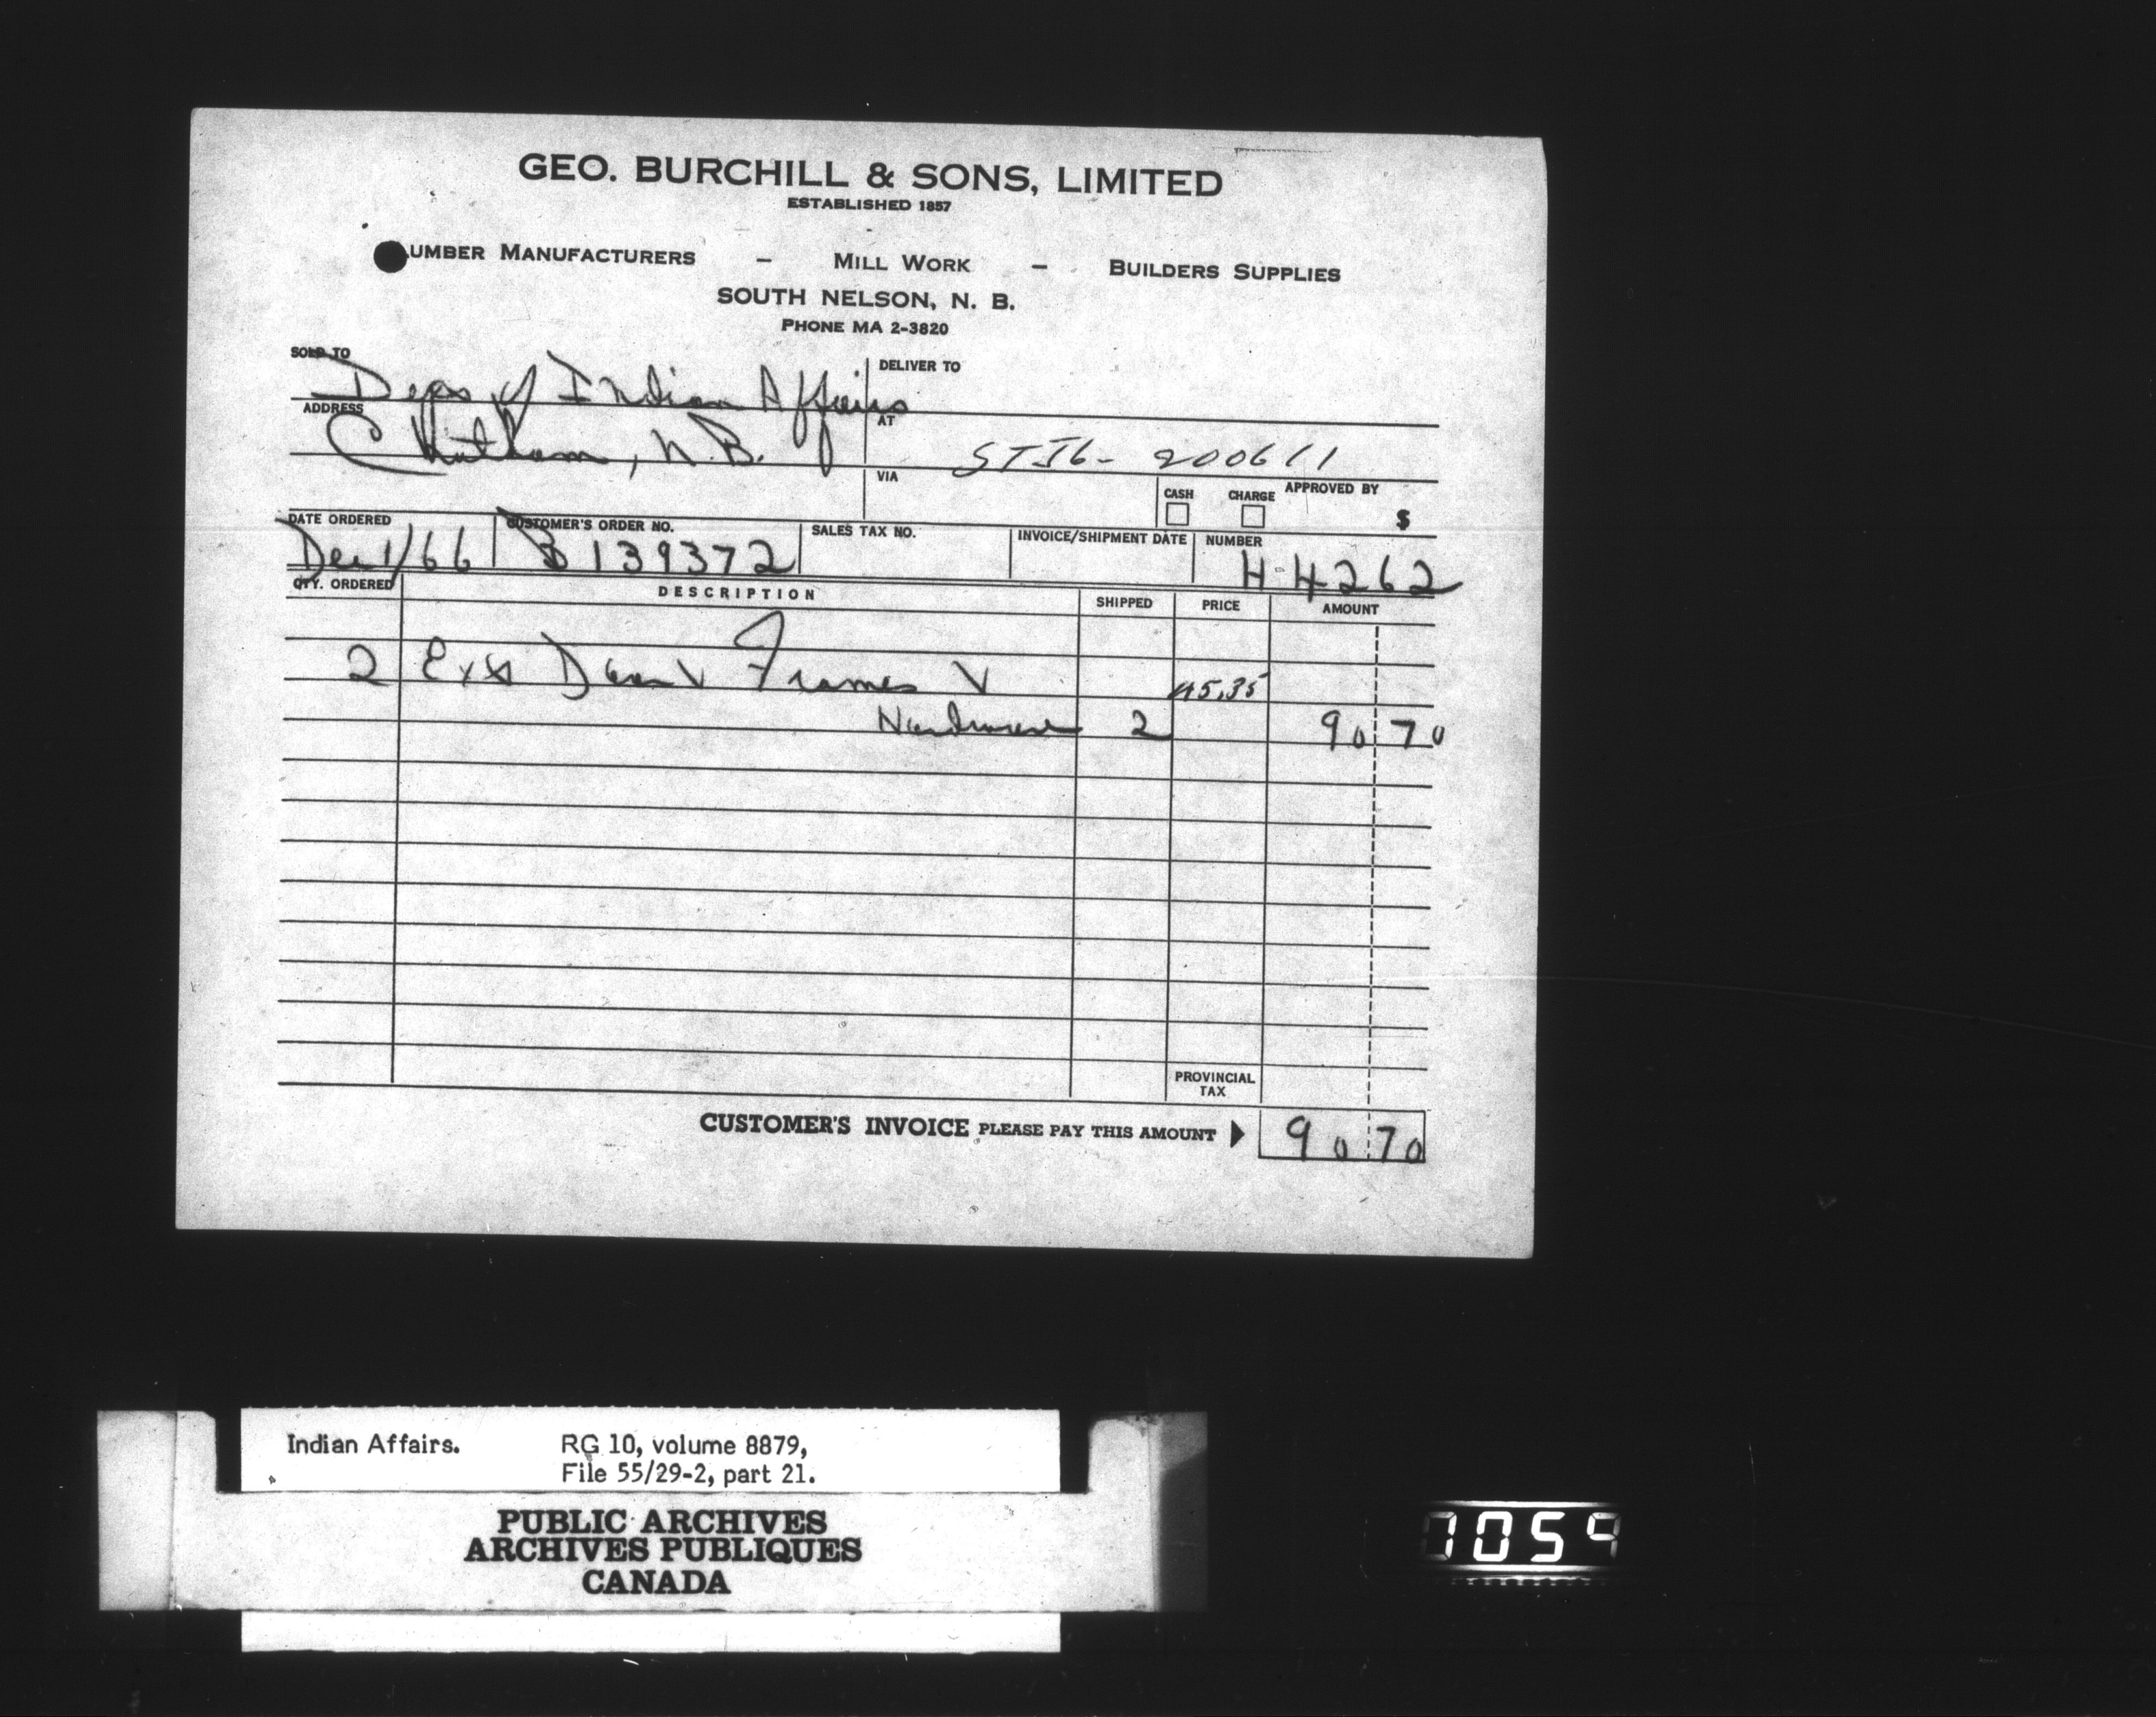 GEO. BURCHILL & SONS, LIMITED
ESTABLISHED 1857
UMBER MANUFACTURERS – MILL WORK – BUILDERS SUPPLIES
SOUTH NELSON, N. B.
PHONE MA 2-3820
SOLD TO DELIVER TO
Dept of Indian Affairs
ADDRESS AT
Chatham, N.B. 200611
VIA
CASH CHARGE APPROVED BY
$
DATE ORDERED CUSTOMER'S ORDER NO. SALES TAX NO. INVOICE/SHIPMENT DATE NUMBER
Dec 1/66 B 139372 H-4262
QTY. ORDERED DESCRIPTION SHIPPED PRICE AMOUNT
2 Ext Door Frames 45.35
Hardware 2 90 70
PROVINCIAL
TAX
CUSTOMER'S INVOICE PLEASE PAY THIS AMOUNT 90 70
Indian Affairs. RG 10, volume 8879,
File 55/29-2, part 21.
PUBLIC ARCHIVES
ARCHIVES PUBLIQUES
CANADA
1059